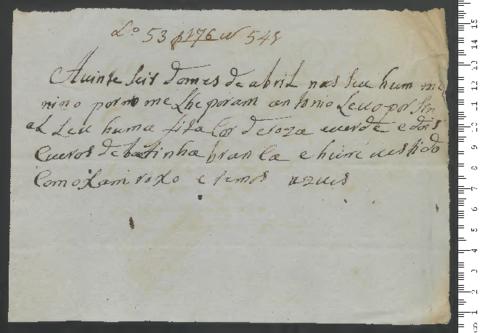 L.º 53 p 176 nº 545
Avinte seis domes de abril nasseu hum me
nino por no me lhe poram antonio Levo por sin
al Leu huma fita Cor de roza e verde e dois
Cueros de batinha branca e hum vestido
Com o xami roxo e ramos azues